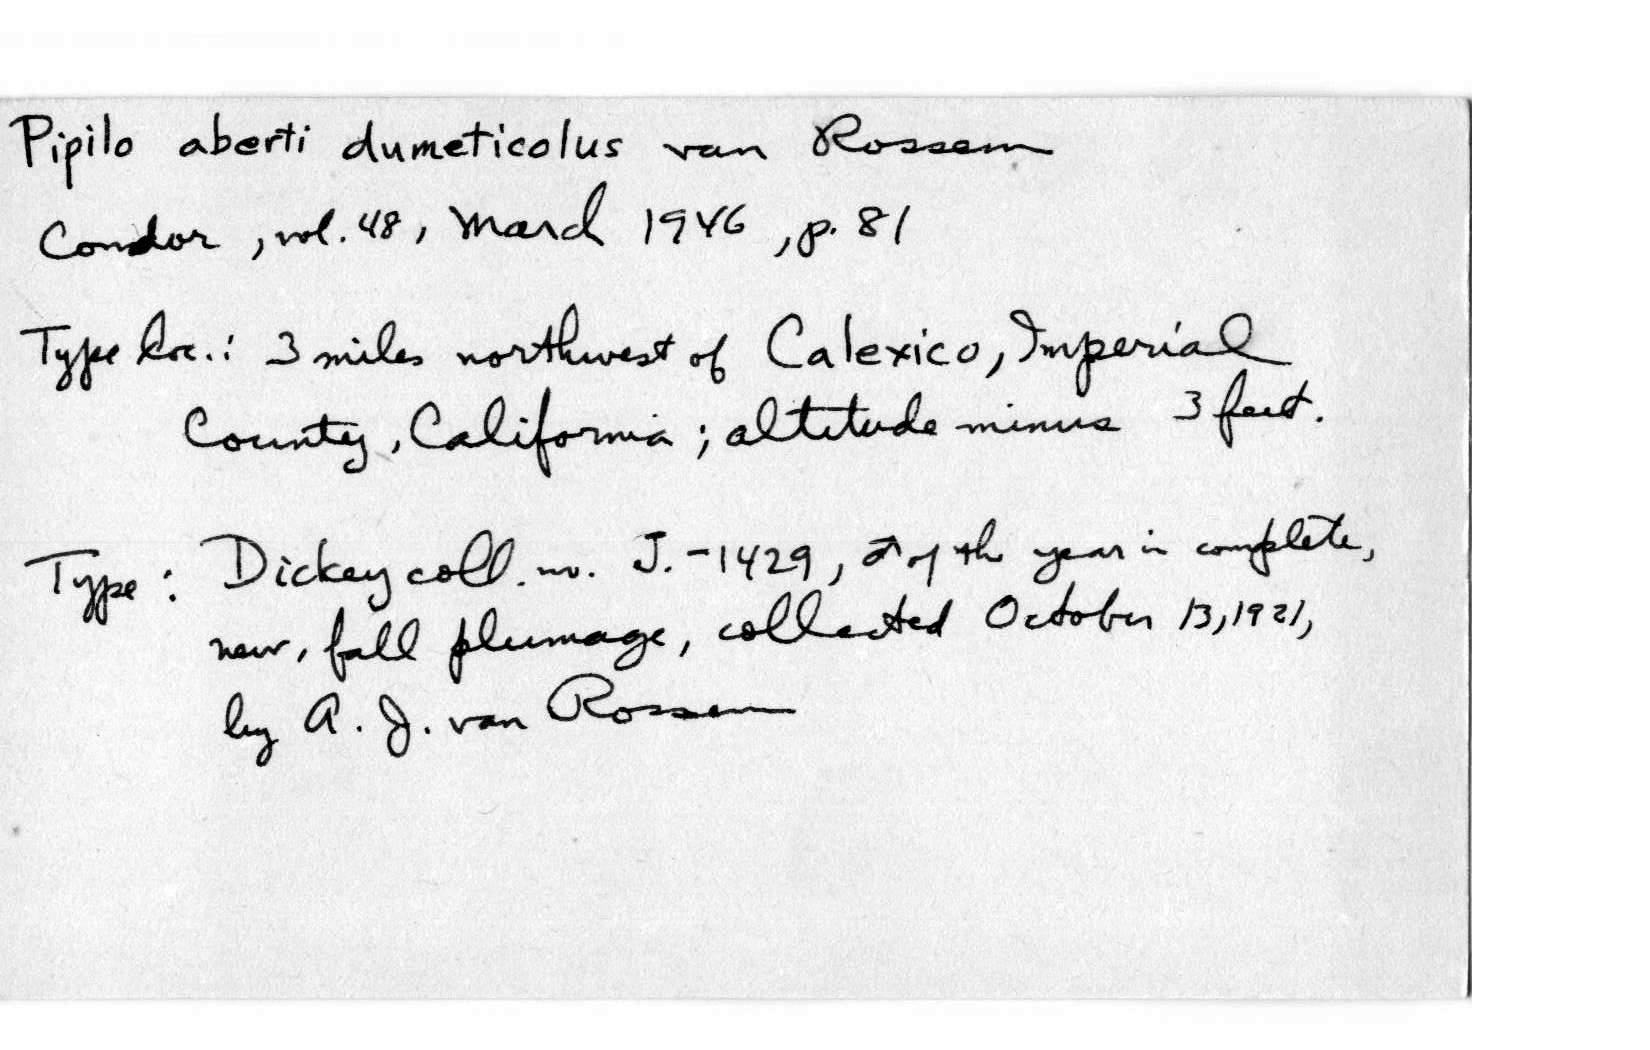 Pipilo aberti dumeticolus van Rossem
Condor, vol. 48, March 1946, p. 81
Type loc.: 3 miles northwest of Calexico, Imperial
County, California; altitude minus 3 feet.
Type: Dickey coll. no. J.-1429, ♂ of the year in complete,
new, fall plumage, collected October 13, 1921,
by A. J. van Rossem